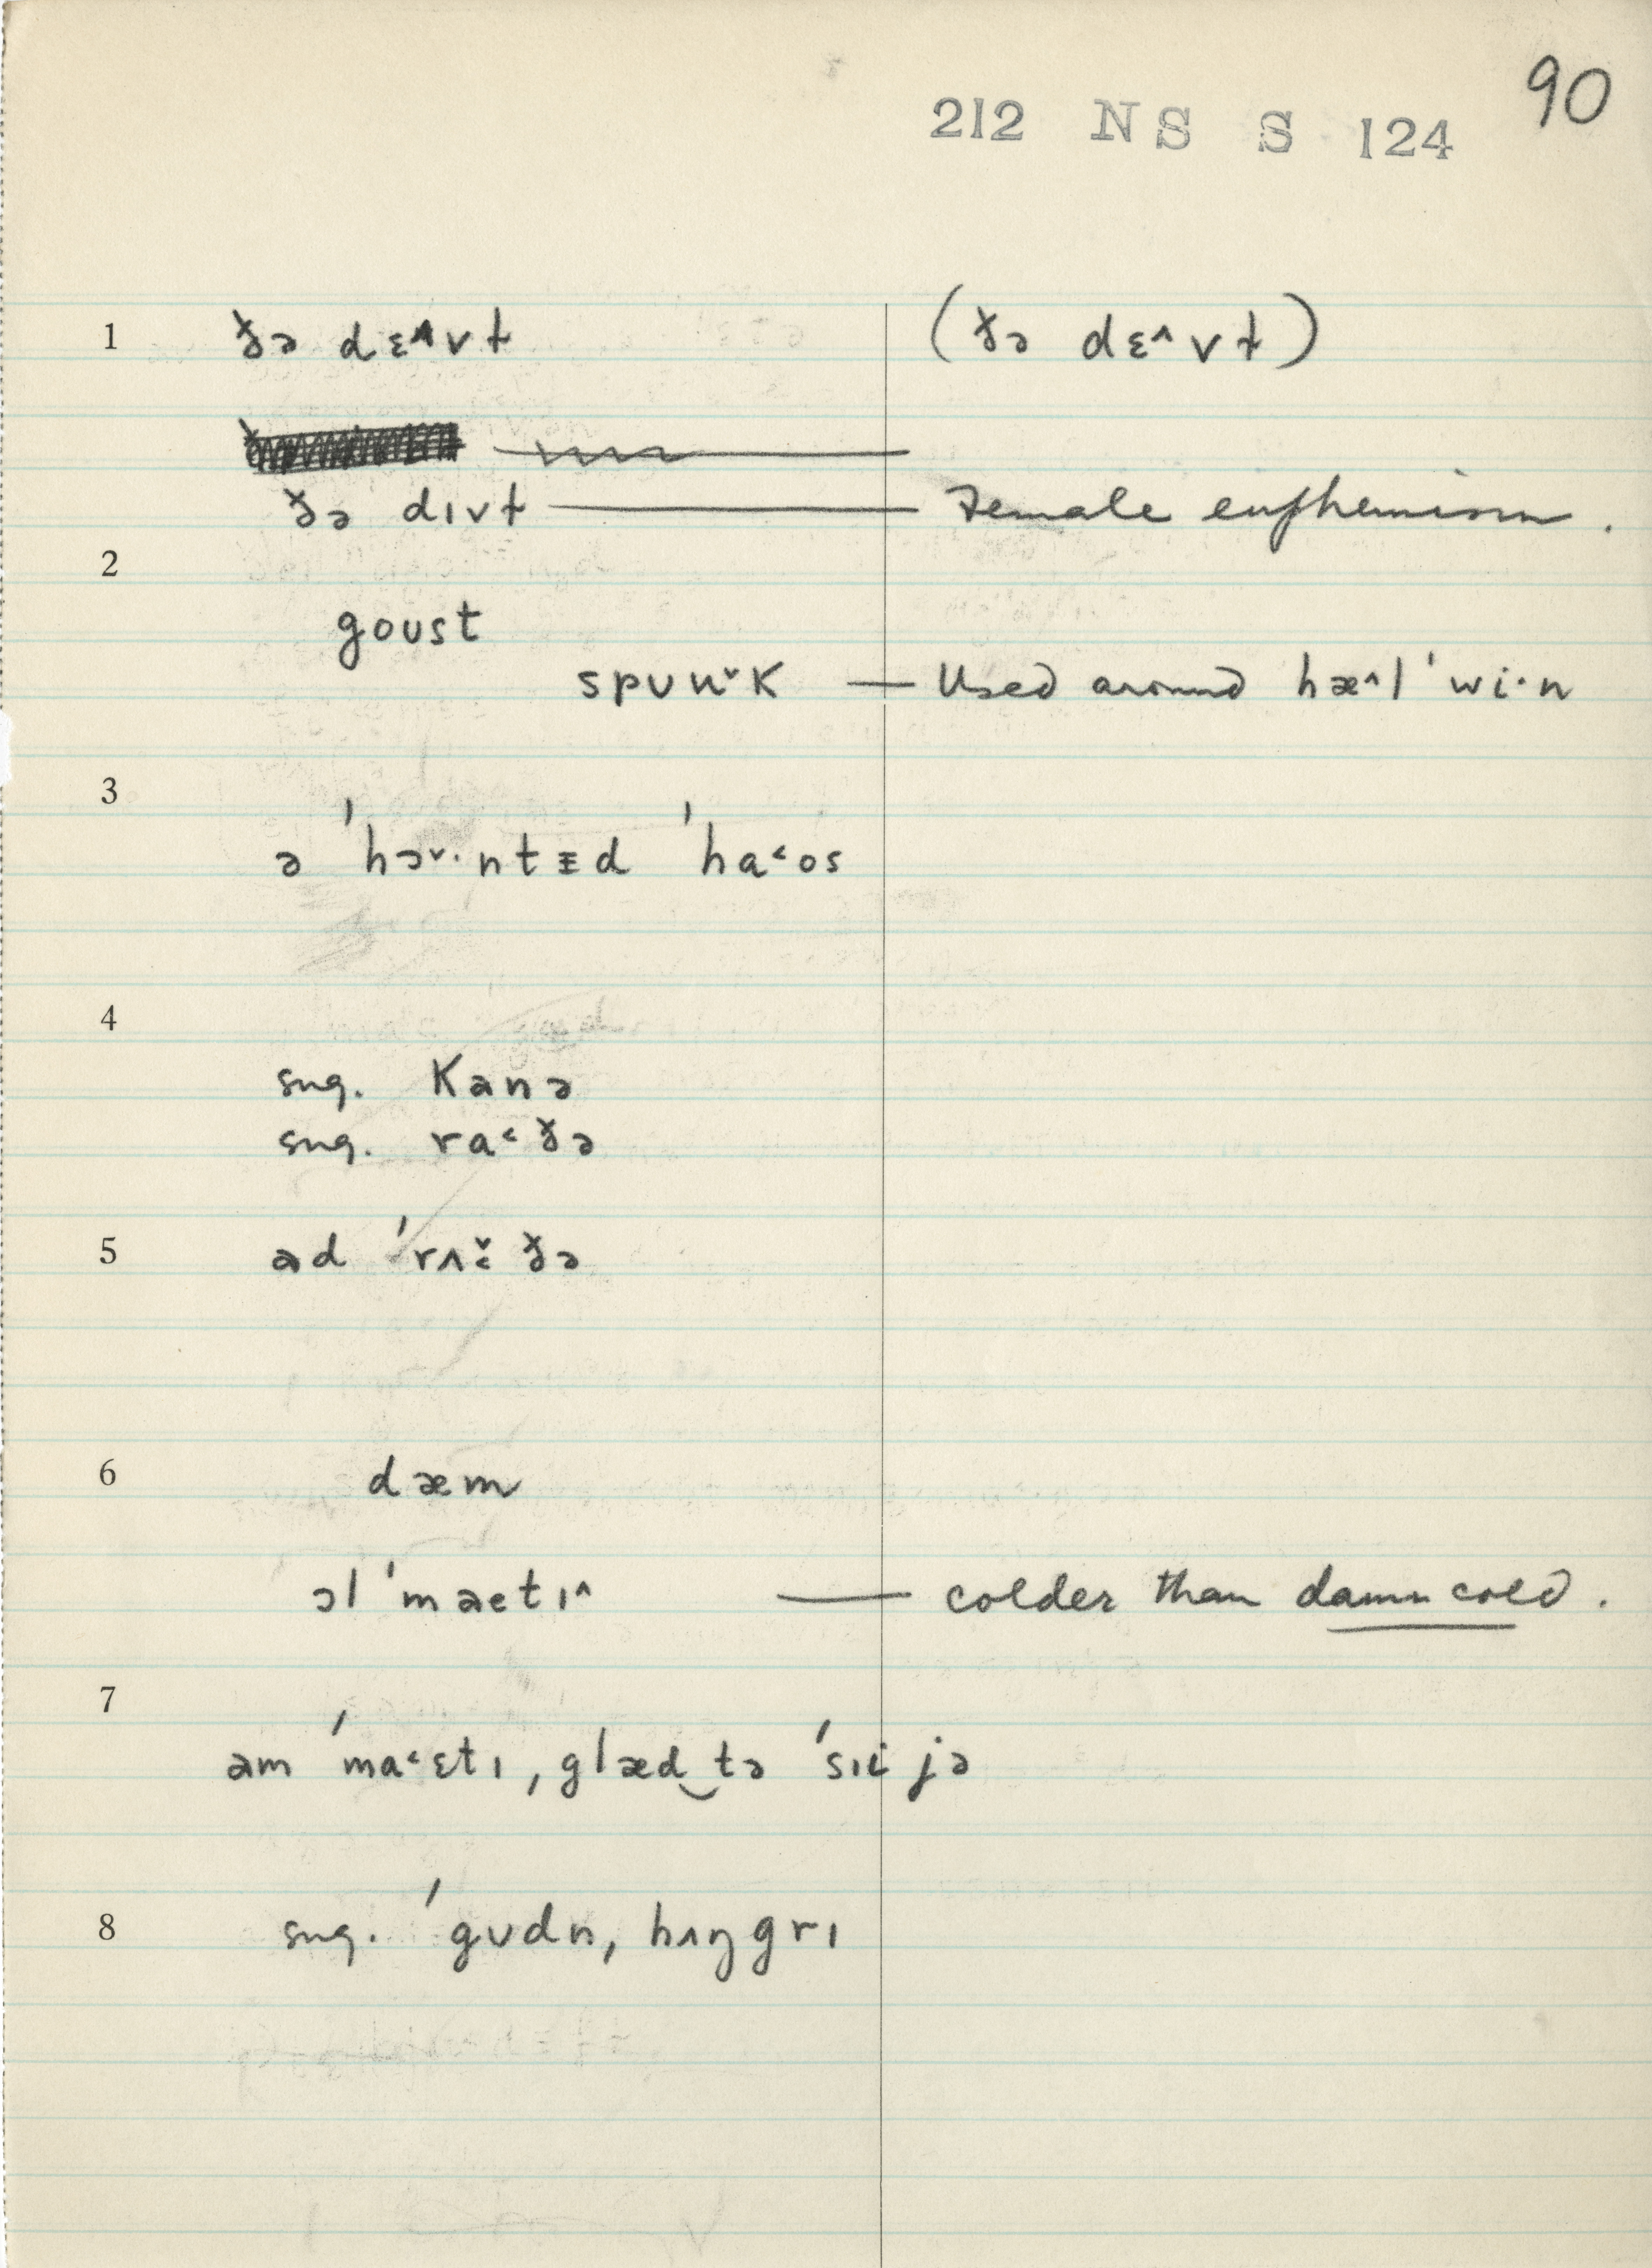 90
212 NS S 124
1 ð̌ə dɛ^vɫ (ð̌ə dɛ^vɫ)
ð̌ə dɪvɫ — Female euphemism.
2
goust
spuuˇk — Used around hæ^l'wi·n
3
ə 'hɔˇ·ntᵻd 'ha˂os
4
sug. Kanə
sug. ra˂ð̌ə
5 əd 'rʌ ð̌ə
6 dæm
ɔl'maetɪ^ — colder than damn cold.
7
əm 'ma˂ɛtɪ, glæd‿tə 'sɪi jə
8 sug. 'gʊdn, hʌŋgrɪ